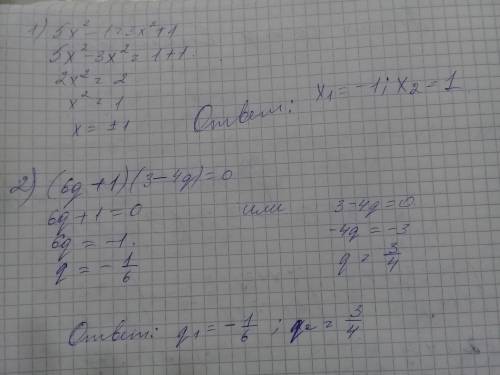 1) 5x² - 1 = 3x² + 1
5x² - 3x² = 1 + 1
2x² = 2
x² = 1
x = ±1
Ответ: x₁ = -1; x₂ = 1
2) (6q + 1)(3 - 4q) = 0
6q + 1 = 0 или 3 - 4q = 0
6q = -1. -4q = -3
q = -1/6 q = 3/4
Ответ: q₁ = -1/6; q₂ = 3/4